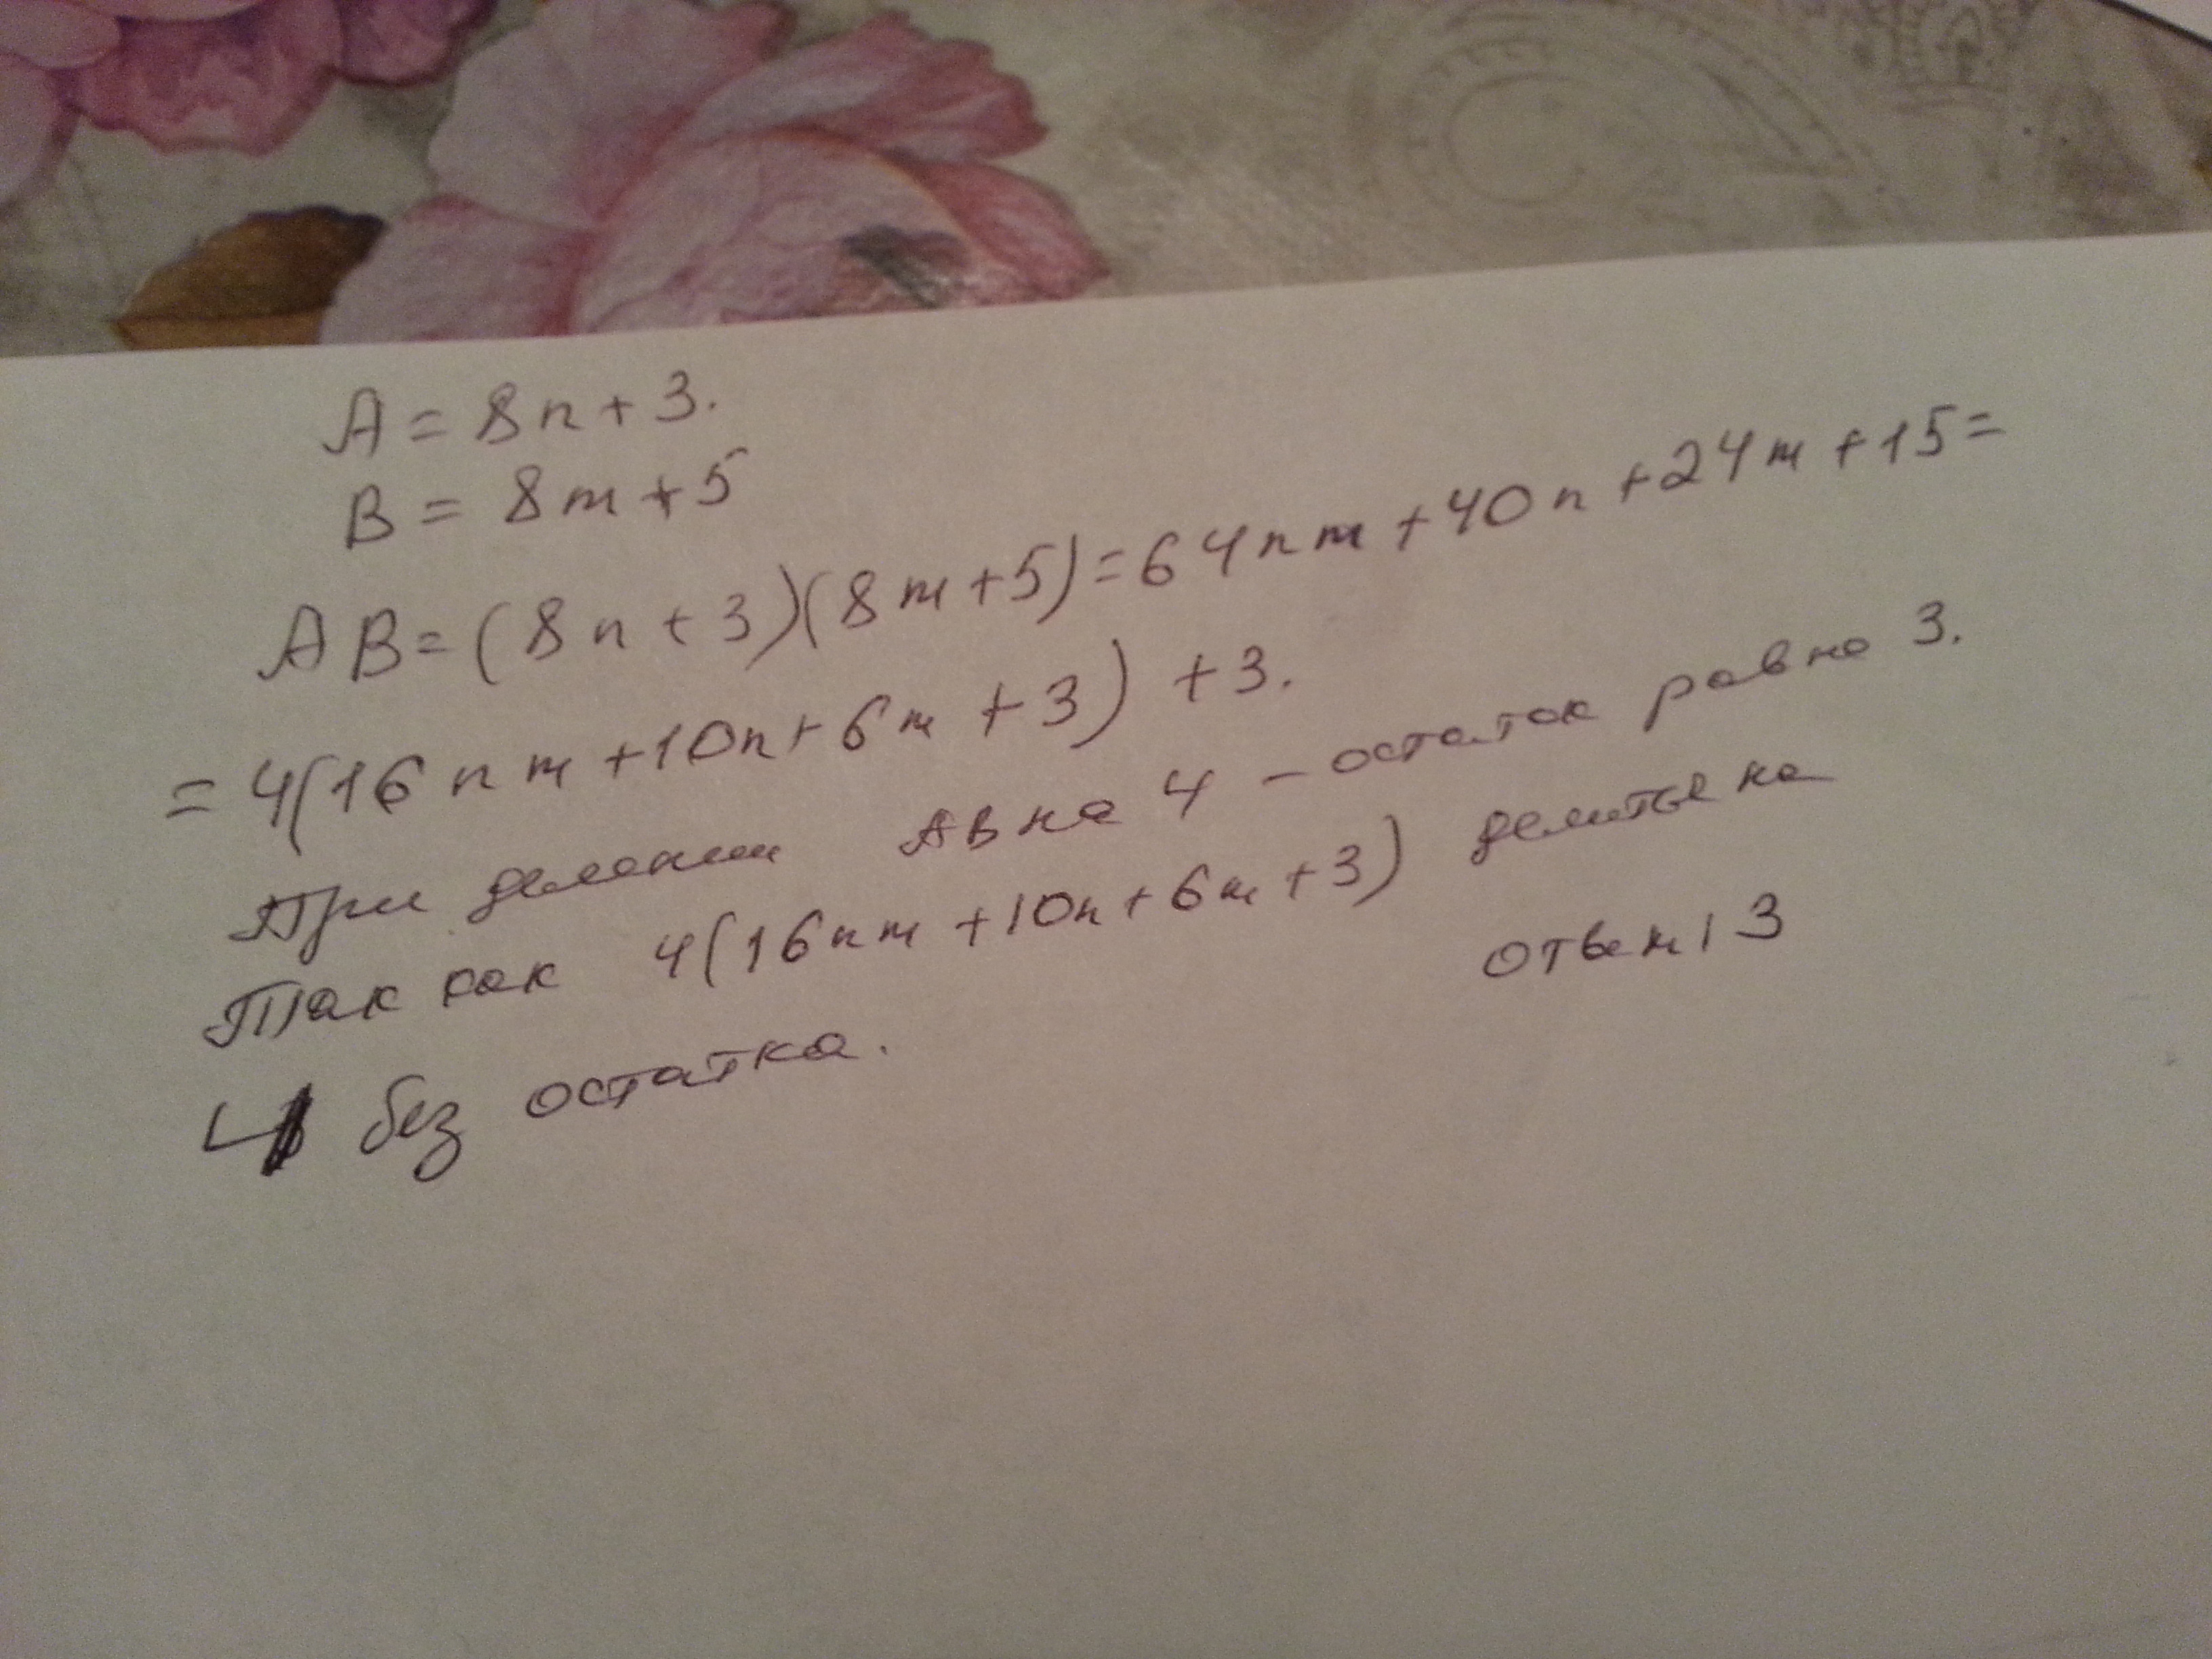 A = 8n + 3.
B = 8m + 5
AB = (8n + 3)(8m + 5) = 64nm + 40n + 24m + 15 =
= 4(16nm + 10n + 6m + 3) + 3.
При делении AB на 4 - остаток равно 3.
Так как 4(16nm + 10n + 6m + 3) делитьс на
4 без остатка.
ответ 3